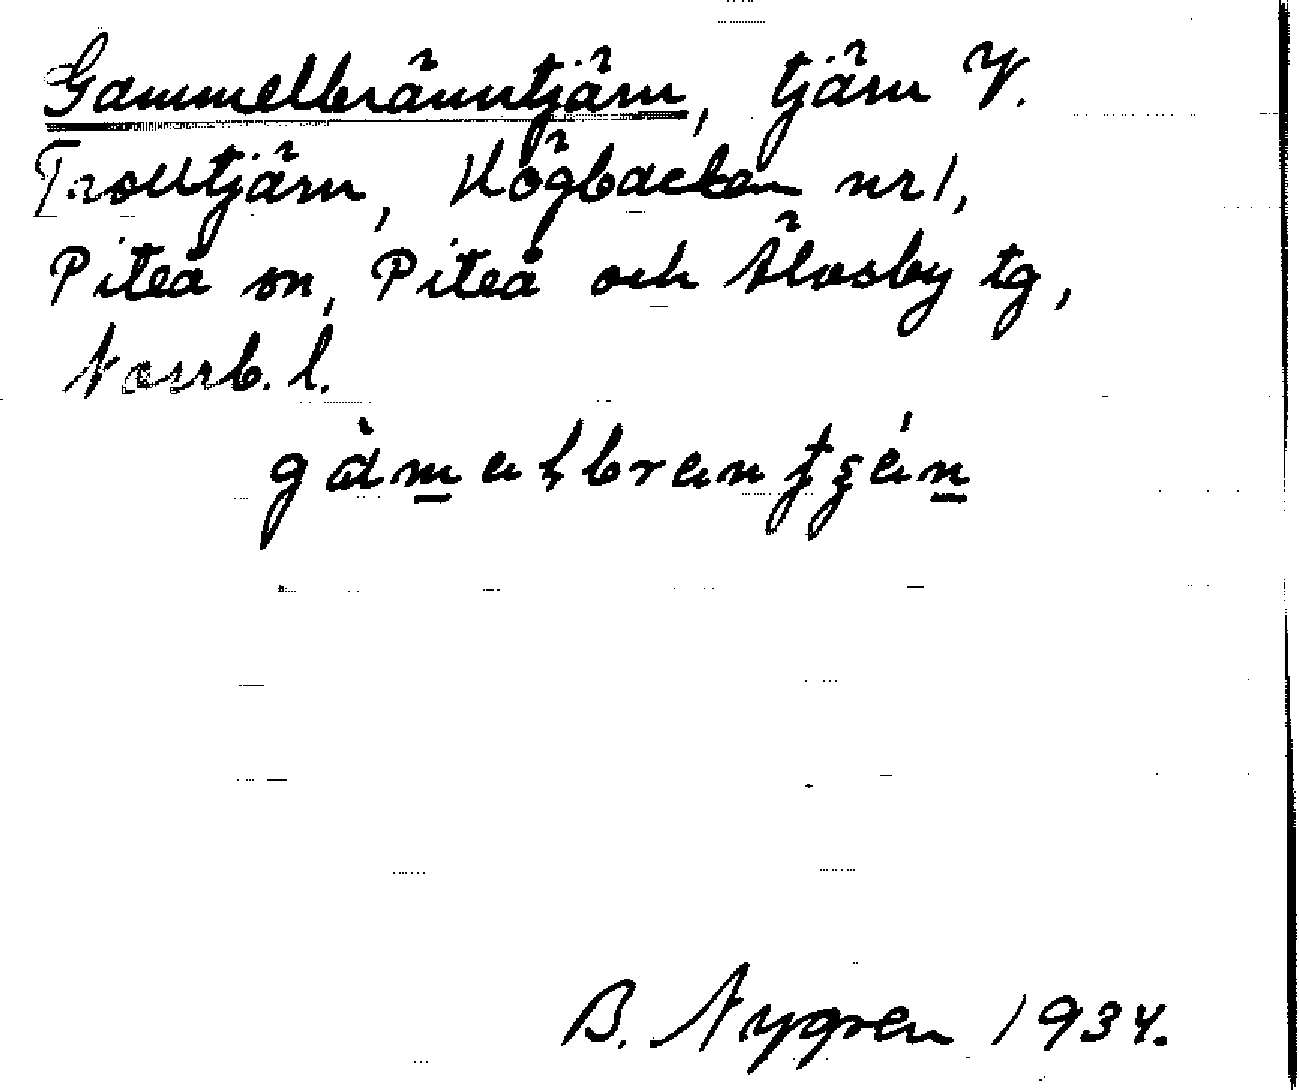 Gammelbränntjärn, tjärn V.
Trolltjärn, Högbacken nr 1,
Piteå sn, Piteå och Älvsby tg,
Norrb. l.
B. Nygren 1934.